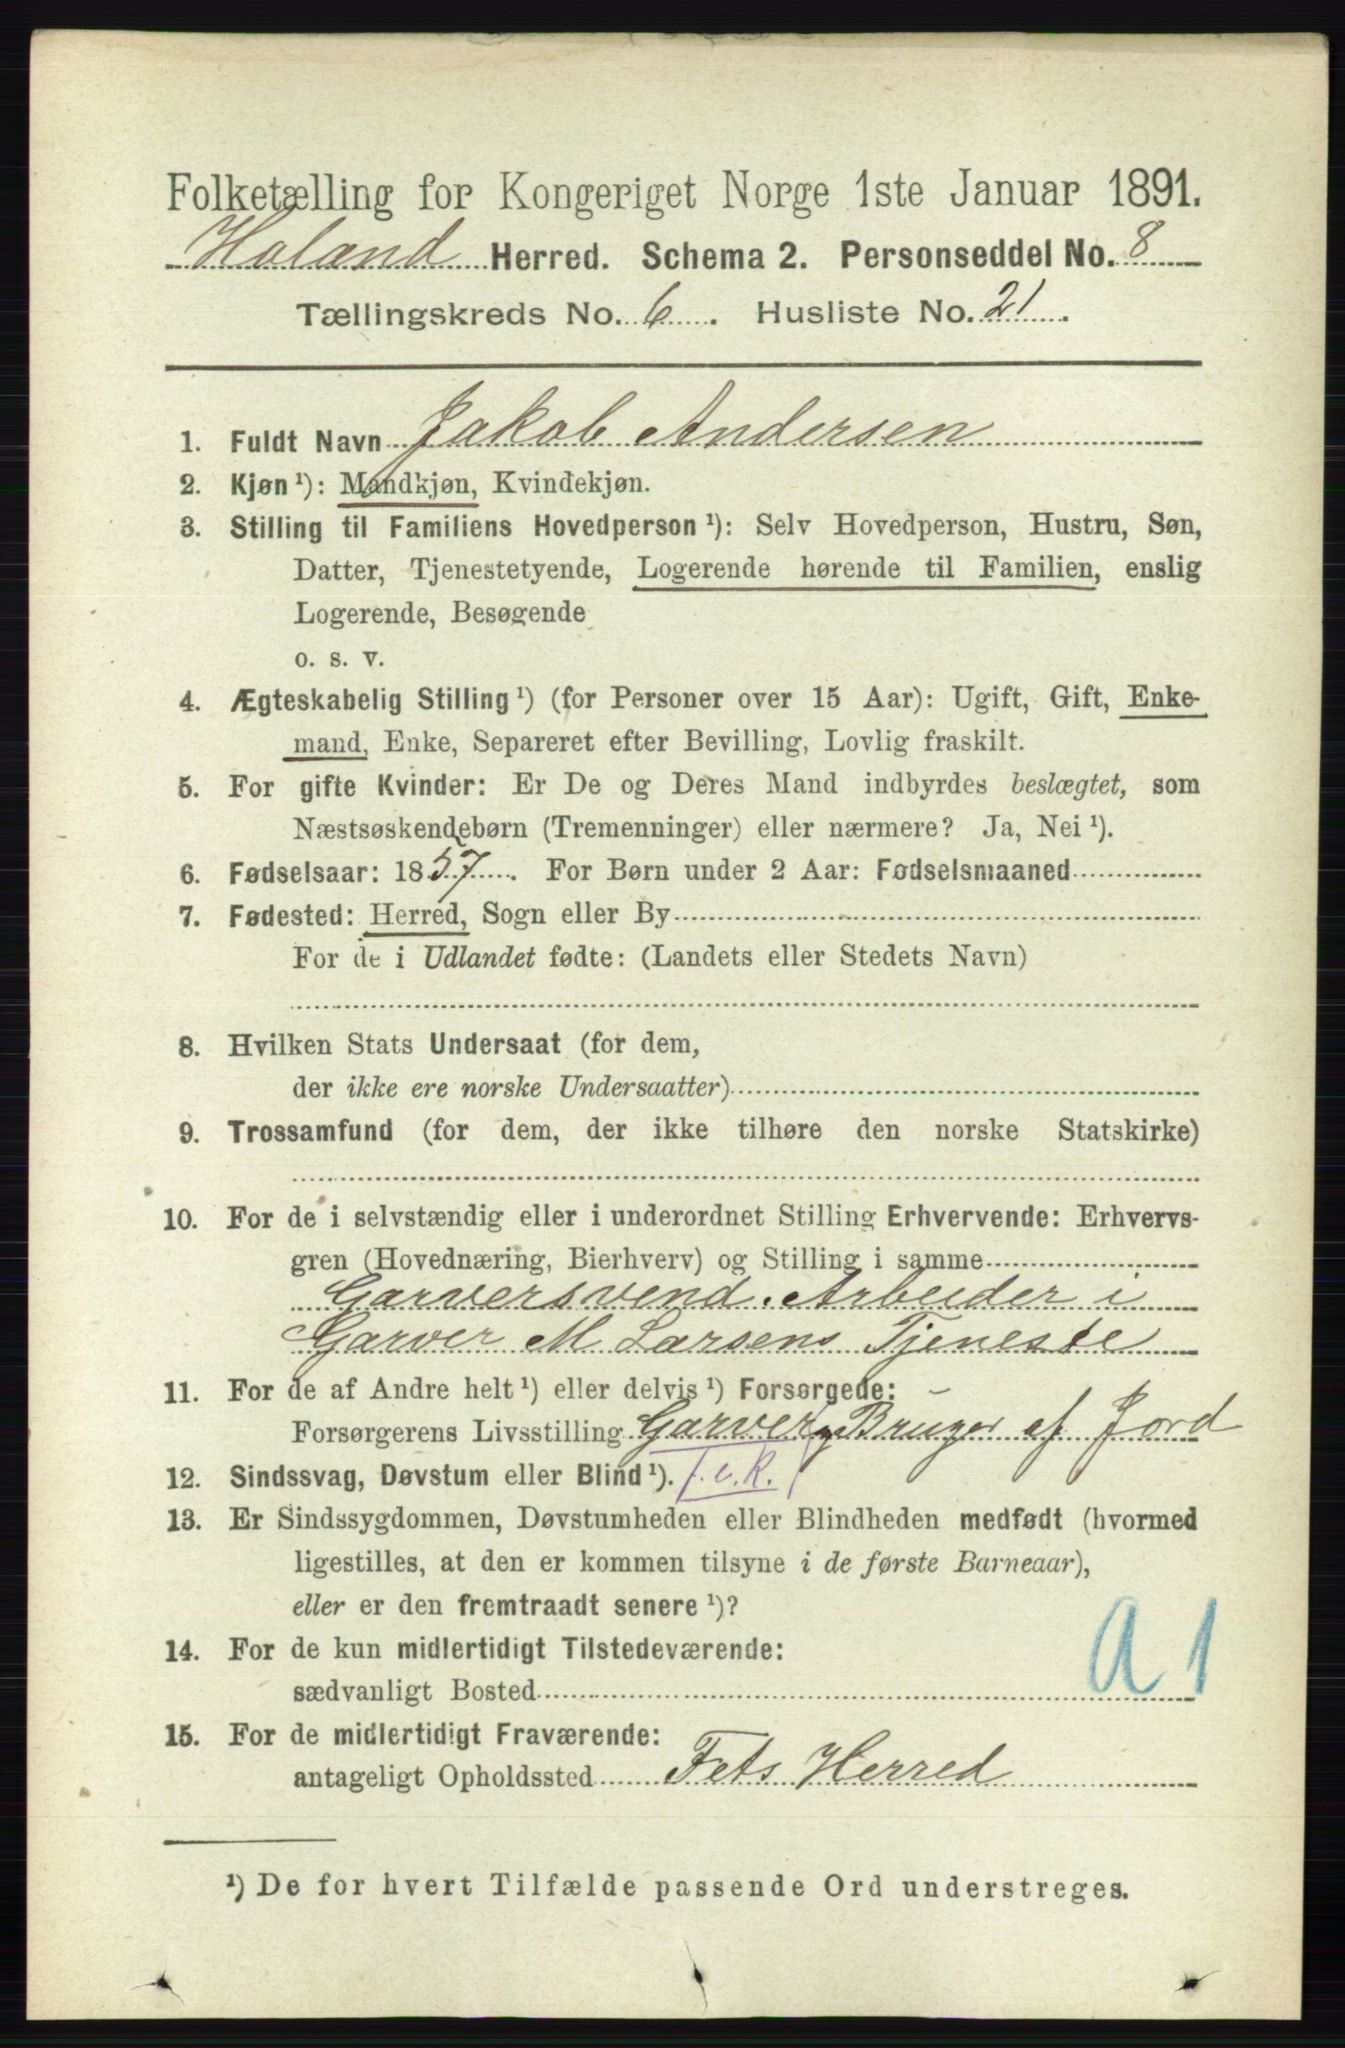 Folketælling for Kongeriget Norge 1ste Januar 1891.
Høland Herred. Schema 2. Personseddel No. 8
Tællingskreds No. 6. Husliste No. 21.
1. Fuldt Navn Jakob Andersen
2. Kjøn ¹): Mandkjøn, Kvindekjøn.
3. Stilling til Familiens Hovedperson ¹): Selv Hovedperson, Hustru, Søn,
Datter, Tjenestetyende, Logerende hørende til Familien, enslig
Logerende, Besøgende
o. s. v.
4. Ægteskabelig Stilling ¹) (for Personer over 15 Aar): Ugift, Gift, Enke-
mand, Enke, Separeret efter Bevilling, Lovlig fraskilt.
5. For gifte Kvinder: Er De og Deres Mand indbyrdes beslægtet, som
Næstsøskendebørn (Tremenninger) eller nærmere? Ja, Nei ¹).
6. Fødselsaar: 1857. For Børn under 2 Aar: Fødselsmaaned
7. Fødested: Herred, Sogn eller By
For de i Udlandet fødte: (Landets eller Stedets Navn)
8. Hvilken Stats Undersaat (for dem,
der ikke ere norske Undersaatter)
9. Trossamfund (for dem, der ikke tilhøre den norske Statskirke)
10. For de i selvstændig eller i underordnet Stilling Erhvervende: Erhvervs-
gren (Hovednæring, Bierhverv) og Stilling i samme
Garversvend. Arbeider i
Garver M Larsens Tjeneste
11. For de af Andre helt ¹) eller delvis ¹) Forsørgede: -
Forsørgerens Livsstilling Garver Bruger af Jord
12. Sindssvag, Døvstum eller Blind ¹).
13. Er Sindssygdommen, Døvstumheden eller Blindheden medfødt (hvormed
ligestilles, at den er kommen tilsyne i de første Barneaar),
eller er den fremtraadt senere ¹)?
14. For de kun midlertidigt Tilstedeværende:
sædvanligt Bosted
a 1
15. For de midlertidigt Fraværende:
antageligt Opholdssted Fets Herred
¹) De for hvert Tilfælde passende Ord understreges.